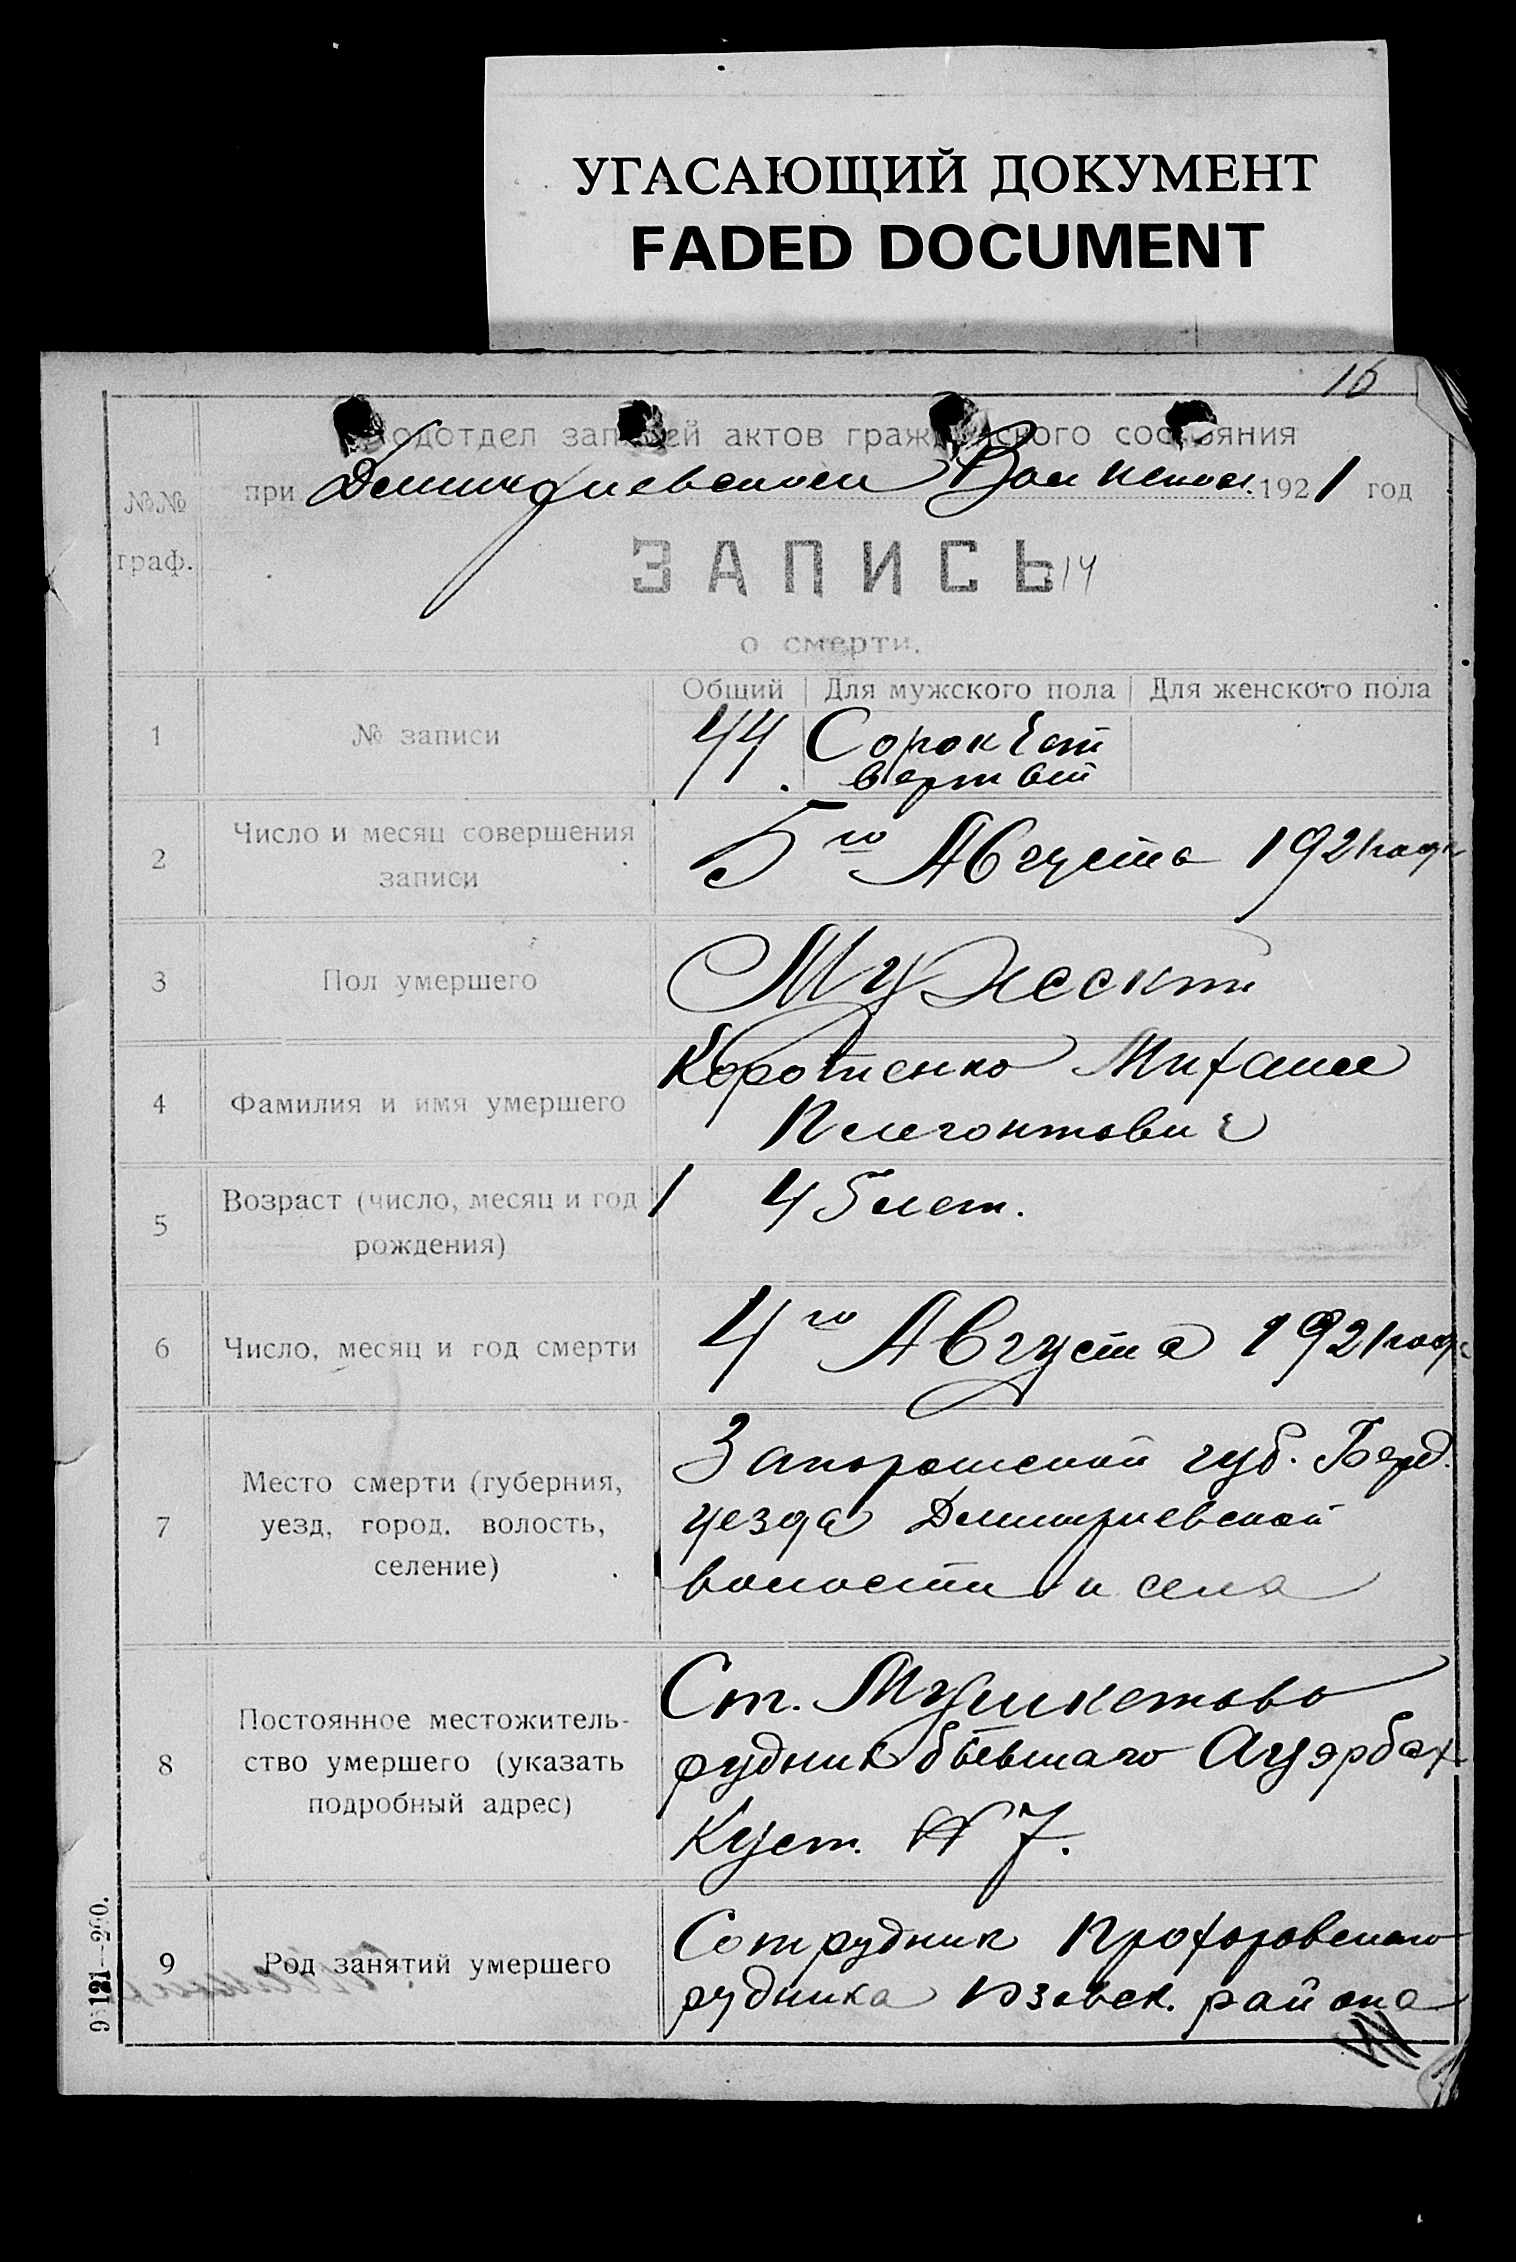 УГАСАЮЩИЙ ДОКУМЕНТ
FADED DOCUMENT
16
Подотдел записей актов гражданского состояния
№№ граф.
при Дмитриевском Вол 1921 год
ЗАПИСЬ 14
о смерти.
Общий Для мужского пола Для женского пола
1 № записи 44 Сорок Чет
вертый
2 Число и месяц совершения записи 5го Августа 1921 года
3 Пол умершего Мужеский
4 Фамилия и имя умершего Коротенко Михаил
Пелегонтович
5 Возраст (число, месяц и год рождения) 45 лет.
6 Число, месяц и год смерти 4го Августа 1921 года
7 Место смерти (губерния, уезд, город, волость, селение)
Запорожской губ. Берд.
уезда Дмитриевской
волости и села
8 Постоянное местожитель-
ство умершего (указать
подробный адрес)
Ст. Мушкетово
рудник бывшаго Ауэрбах
Куст. № 7.
9 Род занятий умершего
Сотрудник Прохоровскаго
рудника Юзовск. района